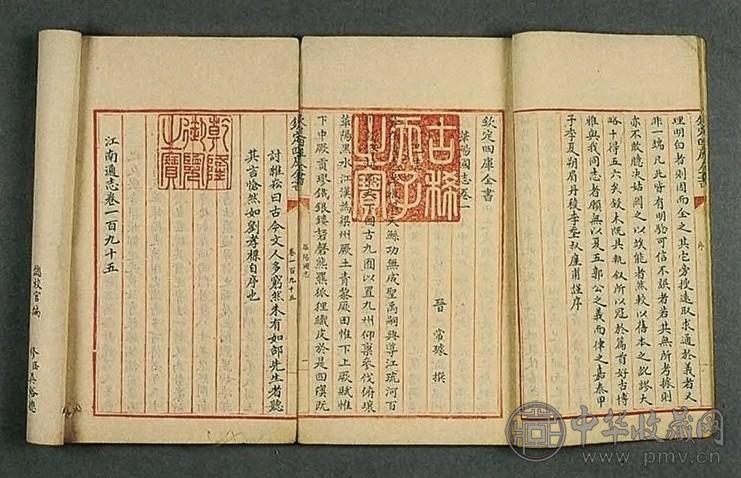 序
理明白者則因而全之其它旁搜遠取求通於義者又
非一端凡此皆有明驗可信不誣者若其無所考據則
亦不敢臆决姑闕之以竢能者然較以舊本之訛謬大
略十得五六矣鋟木既具輒叙所以冠於篇首好古博
雅與我同志者願無以夏五郭公之義而律之嘉泰甲
子季夏朔眉丹稜李叔廑甫謹序
欽定四庫全書
華陽國志卷一
晉 常璩 撰
古稀天子之寶
鯀功無成聖禹嗣興導江疏河百
古九囿以置九州仰稟參伐俯壤
華陽黑水江漢為梁州厥土青黎厥田惟下上厥賦惟
下中厥貢璆鐵銀鏤砮磬熊羆狐狸織皮於是四隩既
華陽國志
欽定四庫全書
卷一百九十五
曰古今文人多窮然未有如邵先生者聽
其言愴然如劉孝標自序也
乾隆御覽之寶
江南通志卷一百九十五
總校官編 修臣吳裕德
中华收藏网
www.pmv.cn